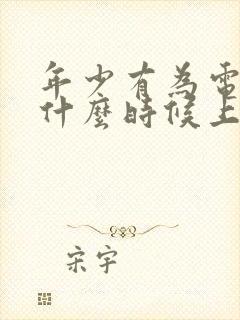 年少有為電
什麼時候上
宋宇